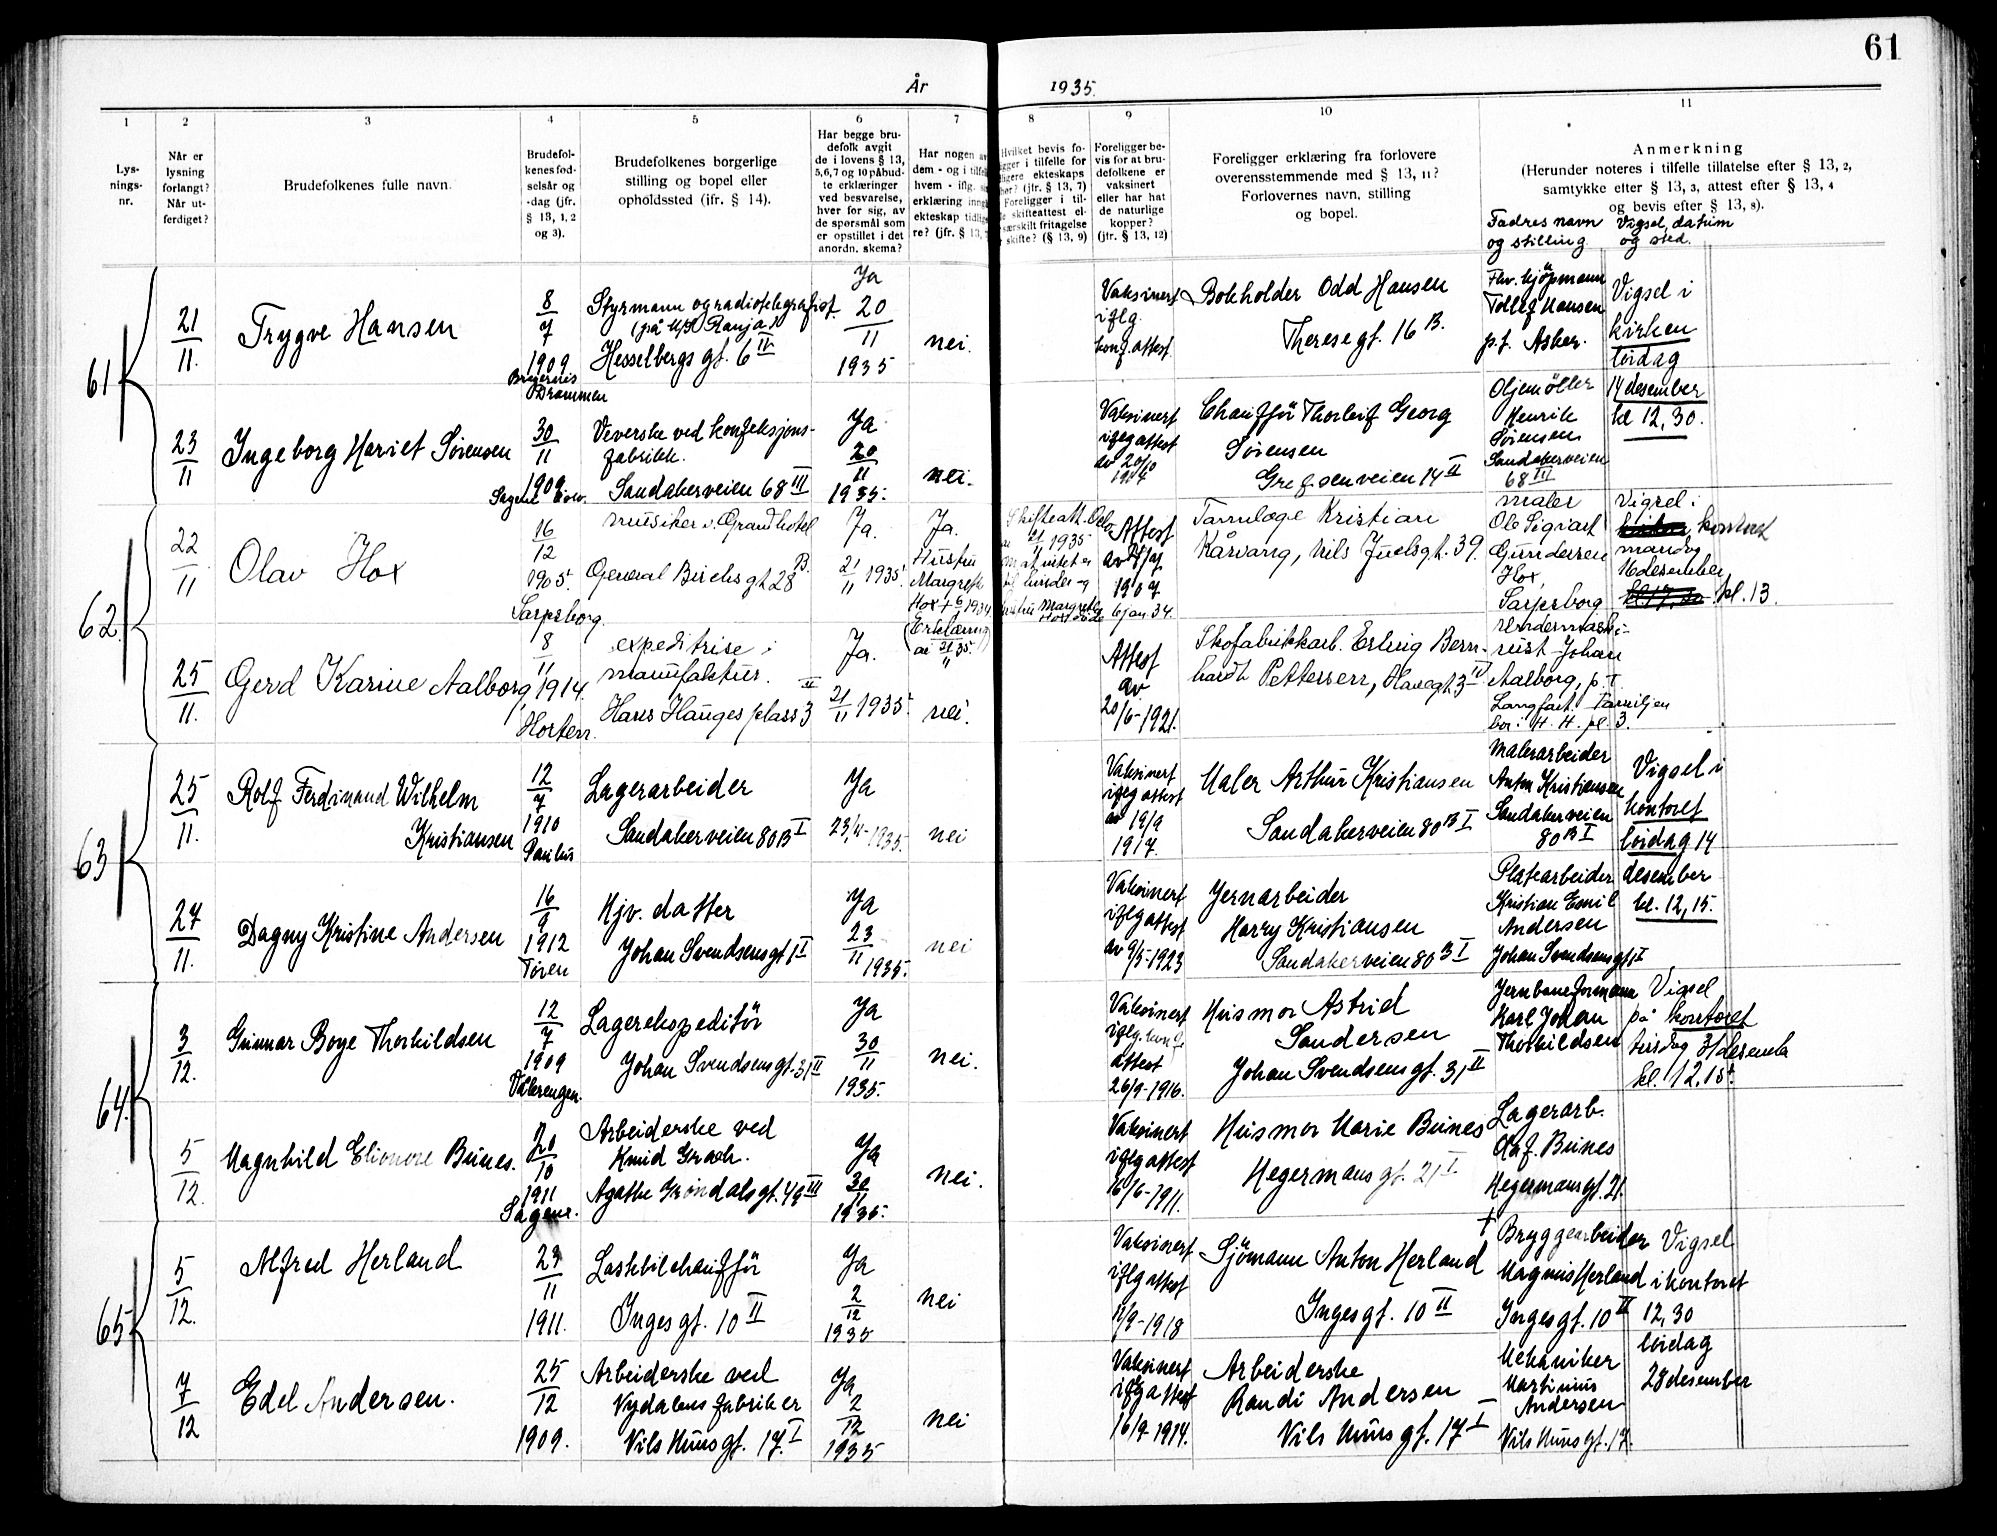 61
År 1935.
1
2
3
4
5
6
7
8
9
10
11
Lys-
nings-
nr.
Når er
lysning
forlangt?
Når ut-
ferdiget?
Brudefolkenes fulle navn.
Brudefol-
kenes fød-
selsår og
-dag (jfr.
§ 13, 1, 2
og 3).
Brudefolkenes borgerlige
stilling og bopel eller
opholdssted (jfr. § 14).
Har begge bru-
defolk avgit
de i lovens § 13,
5,6,7 og 10 påbud-
te erklæringer
ved besvarelse,
hver for sig, av
de spørsmål som
er opstillet i det
anordn. skema?
Har nogen av
dem - og i tilfelle
hvem - iflg.
erklæring inngått
ekteskap tidlige-
re? (jfr. § 13,
Hvilket bevis fo-
religger i tilfelle for
tidligere ekteskaps
ophør? (jfr. § 13, 7)
Foreligger i til-
felle skifteattest el-
særskilt fritagelse
skifte? (§ 13, 9)
Foreligger be-
vis for at bru-
defolkene er
vaksinert
eller har hat
de naturlige
kopper?
(jfr. § 13, 12)
Foreligger erklæring fra forlovere
overensstemmende med § 13, 11?
Forlovernes navn, stilling
og bopel.
Anmerkning
(Herunder noteres i tilfelle tillatelse efter § 13, 2,
samtykke efter § 13, 3, attest efter § 13, 4
og bevis efter § 13, 8).
Fadres navn
og stilling
Vigsel, datum
og sted.
61
21
11.
Trygve Hansen
8
7
1909
Bragernes
Drammen
Styrmann og radiotelegrafist.
(på M/S Ranja)
Hesselbergs gt. 6 IV
Ja
20
11
1935
nei.
Vaksinert
iflg.
konf. attest
Bokholder Odd Hansen
Therese gt. 16 B.
Fhv. kjøpmann
Tollef Hansen
p.t. Asker.
Vigsel i
kirken
lørdag
14 desember
kl 12,30.
23
11
Ingeborg Hariet Sørensen
30
11
1909
Sagene Oslo.
Veverske ved konfeksjons-
fabrikk.
Sandakerveien 68 III
Ja
20
11
1935.
nei.
Vaksinert
iflg attest
av 20/10
Chauffør Thorleif Georg
Sørensen
Grefsenveien 14 II
Oljemøller
Henrik
Sørensen
Sandakerveien
68 III
62
22
11
Olav Hox
16
12
1905.
Sarpsborg.
musiker v. Grand hotel
General Birchs gt 28 B.
Ja.
21
11 1935.
Ja.
Hustru
Margrete
Hox + 6/1 1934
(Erklæring
av 21/11 35.
Skifteatt. Oslo
21/11 1935
6 jan 34.
Attest
1907
Tannlæge Kristian
Kårvang, Nils Juelsgt. 39.
maler
Ole Sigvart
Gundersen
Hox,
Sarpsborg
Vigsel i
kontoret
mandag
16 desember
kl. 13.
25
11.
Gerd Karine Aalborg,
8
11
1914.
Horten.
expeditrise i
manufaktur.
Hans Hauges plass 3 II
Ja.
21
11 1935.
nei.
Attest
av
20/6-1921.
Skofabrikkarb. Erling Bern-
hardt Pettersen, Havegt. 3 IV
Undermaski-
nist Johan
Aalborg, p.t
Langfart. Familjen
bor i H. H. pl. 3.
63
25
11.
Rolf Ferdinand Wilhelm
Kristiansen
12
7
1910
Paulus
Lagerarbeider
Sandakerveien 80 B I
Ja
23/11-1935.
nei
Vaksinert
iflg attest
av 19/9
1917.
Maler Arthur Kristiansen
Sandakerveien 80 B I
Malerarbeider
Anton Kristiansen
Sandakerveien
80 B I
Vigsel i
kontoret
lørdag 14
desember
kl. 12,15.
27
11.
Dagny Kristine Andersen
16
9
1912
Hjv. datter
Johan Svendsens gt 1 I
Ja
23
11
1935.
nei
Vaksinert
iflg attest
av 9/5-1923
Jernarbeider
Harry Kristiansen
Sandakerveien 80 B I
Platearbeider
Kristian Emil
Andersen
Johan Svendsens gt 1 I
64.
3
12.
Gunnar Boye Thorkildsen
12
7
1909
Vålerengen.
Lagerekspeditør
Johan Svendsens gt. 31 II
Ja
30
11
1935.
nei.
Vaksinert
iflg. konf
attest
26/9-1916.
Husmor Astrid
Sandersen
Johan Svendsens gt. 31 II
Jernbaneformann
Karl Johan
Thorkildsen
Vigsel
på kontoret
tirsdag 31 desember
kl. 12,15.
5
12.
Magnhild Elionore Bunes.
20
10
1911
Sagene.
Arbeiderske ved
Knud Grach.
Agathe Grøndals gt. 49 III
Ja
30
11
1935.
nei.
Vaksinert
iflg attest
16/6-1911.
Husmor Marie Bunes
Hegermans gt. 21 I
Lagerarb.
Olaf. Bunes
Hegermansgt. 21.
65
5
12.
Alfred Herland
11
1911.
Lastebilchauffør
Inges gt. 10 II
Ja
2
12
1935
nei
Vaksinert
iflg attest
11/9-1918
Sjømann Anton Herland
Inges gt. 10 II
+ Bryggearbeider
Magnus Herland
Inges gt. 10 II
Vigsel
i kontoret
12,30
lørdag
28 desember
7
12
Edel Andersen.
25
12
1909.
Arbeiderske ved
Nydalens fabrikker
Nils Huus gt. 17. I
Ja
2
12
1935
nei
Vaksinert
iflg attest
16/9-1914.
Arbeiderske
Randi Andersen
Nils Huus gt. 17 I
Mekaniker
Martinius
Andersen
Nils Huus gt. 17.